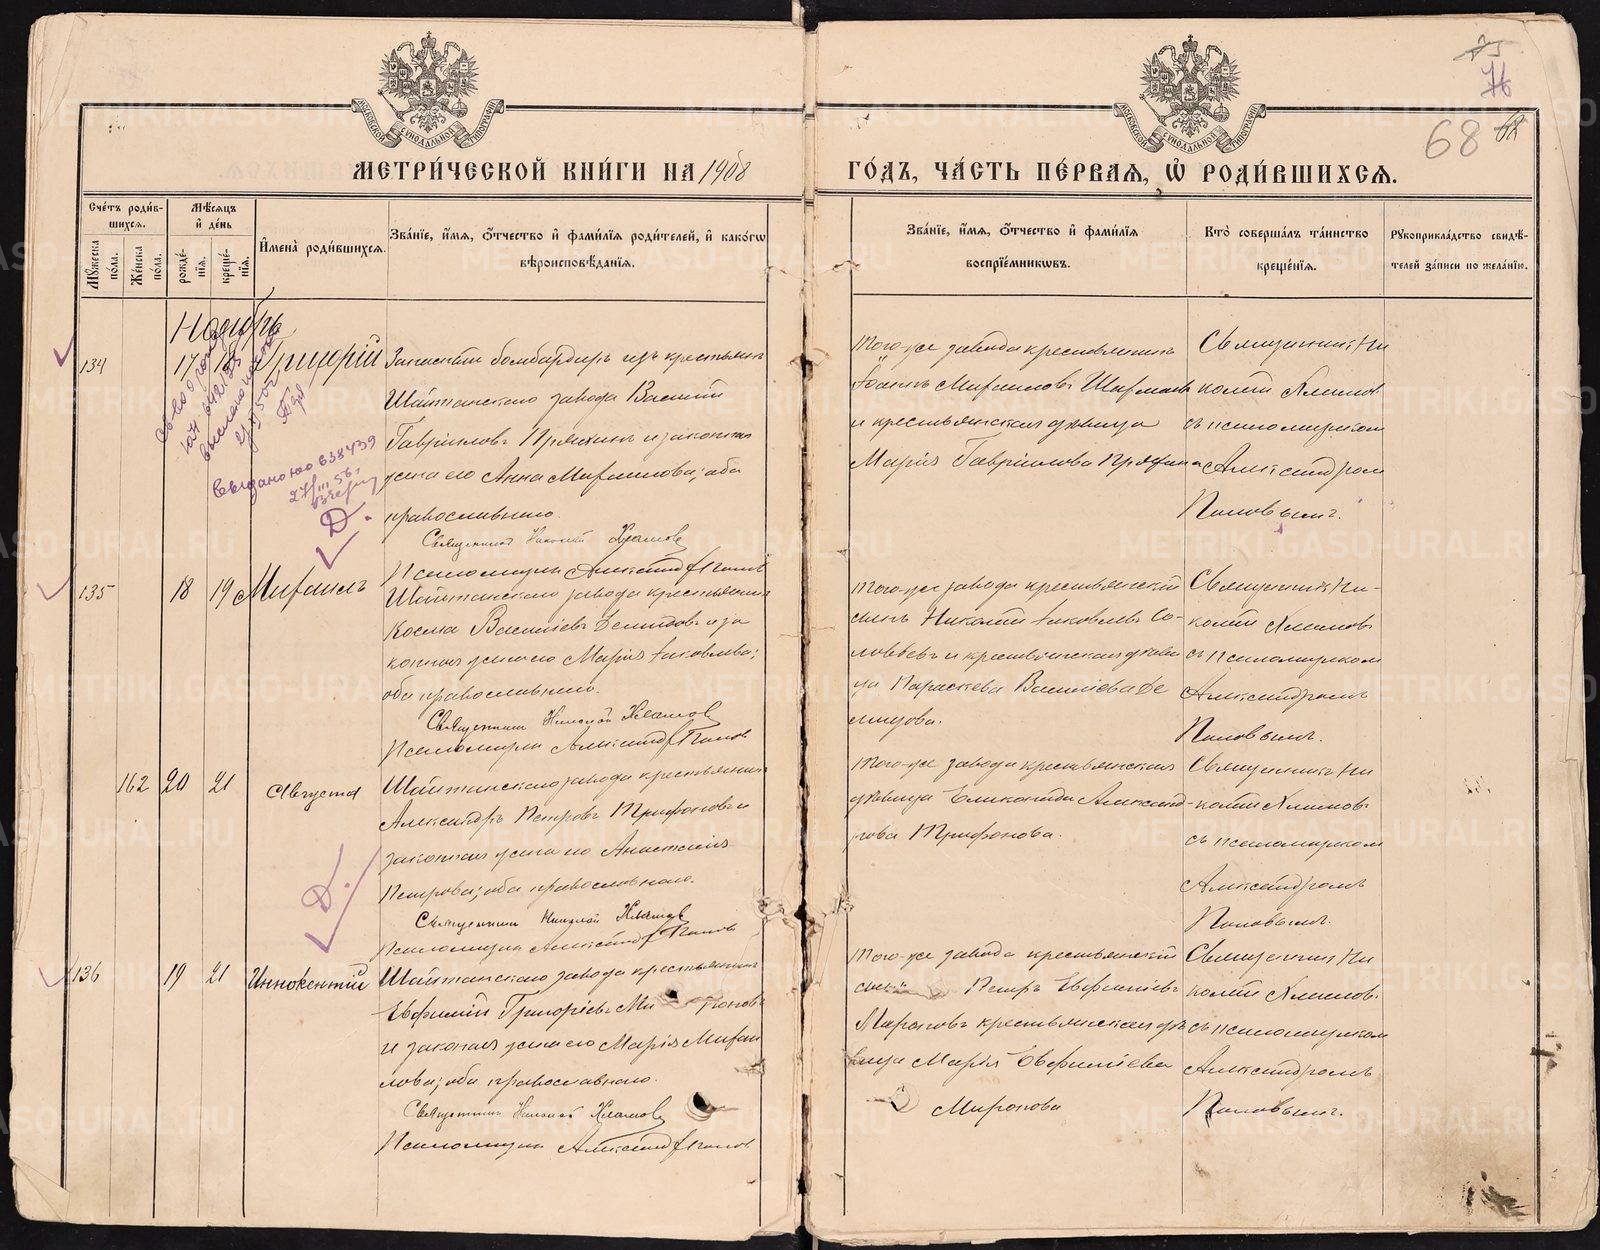 МЕТРИ́ЧЕСКОЙ КНИ́ГИ НА 1908
ГО́ДЪ, ЧА́СТЬ ПЕ́РВАЯ, Ѽ РОДИ́ВШИХСЯ.
68
Сче́тъ роди́в-
шихся.
Мѣ́сяцъ
и҆ де́нь
Мꙋ́жеска по́ла.
Же́нска по́ла.
рожде́-
нїя.
креще́-
нїя.
И҆мена̀ роди́вшихся.
Зва́нїе, и҆́мя, ѻ҆́тчество и҆ фами́лїя роди́телей, и҆ како́гѡ
вѣроисповѣ́данїя.
Зва́нїе, и҆́мя, ѻ҆́тчество и҆ фами́лїя
воспрїе́мникѡвъ.
Кто̀ соверша́лъ та́инство
креще́нїя.
Рꙋкоприкла́дство свидѣ́-
телей за́писи по жела́нїю.
Ноябрь
134 17 18 Григорій
Запасный бомбардиръ изъ крестьянъ
Шайтанскаго завода Василій
Гавріиловъ Пряхинъ и законная
жена его Анна Михаилова; оба
православнаго.
Священникъ Николай Хламовъ
Псаломщикъ Александръ Поповъ
Того-же завода крестьянинъ
Михаиловъ
и крестьянская дѣвица
Марія Гавріилова Пряхина
Священникъ Ни
колай Хламовъ
съ псаломщикомъ
Александромъ
Поповымъ.
выдано
638439
27/III 56
Д.
135 18 19 Михаилъ
Шайтанскаго завода крестьянинъ
Косма Василіевъ Демидовъ и за
конная жена его Марія Іаковлева;
оба православнаго.
Священникъ Николай Хламовъ
Псаломщикъ Александръ Поповъ
Того-же завода крестьянскій
сынъ Николай Іаковлевъ Со-
ловьевъ и крестьянская дѣви
ца Параскева Василіева Де
мидова.
Священникъ Ни-
колай Хламовъ
съ псаломщикомъ
Александромъ
Поповымъ.
162 20 21 Августа
Шайтанскаго завода крестьянинъ
Александръ Петровъ Трифоновъ и
законная жена его Анастасія
Петрова; оба православнаго.
Священникъ Николай Хламовъ
Псаломщикъ Александръ Поповъ
Того-же завода крестьянская
дѣвица Еликанида Александ-
рова Трифонова.
Священникъ Ни
колай Хламовъ
съ псаломщикомъ
Александромъ
Поповымъ.
Д.
136 19 21 Иннокентій
Шайтанскаго завода крестьянинъ
Евфимій Григоріевъ Ми роновъ
и законная жена его Марія Михаи
лова; оба православнаго.
Священникъ Николай Хламовъ
Псаломщикъ Александръ Поповъ
Того-же завода крестьянскій
сынъ Петръ Евфиміевъ
Мироновъ крестьянская дѣ
вица Марія Евфиміева
Миронова
Священникъ Ни
колай Хламовъ
съ псаломщикомъ
Александромъ
Поповымъ.
METRIKI.GASO-URAL.RU